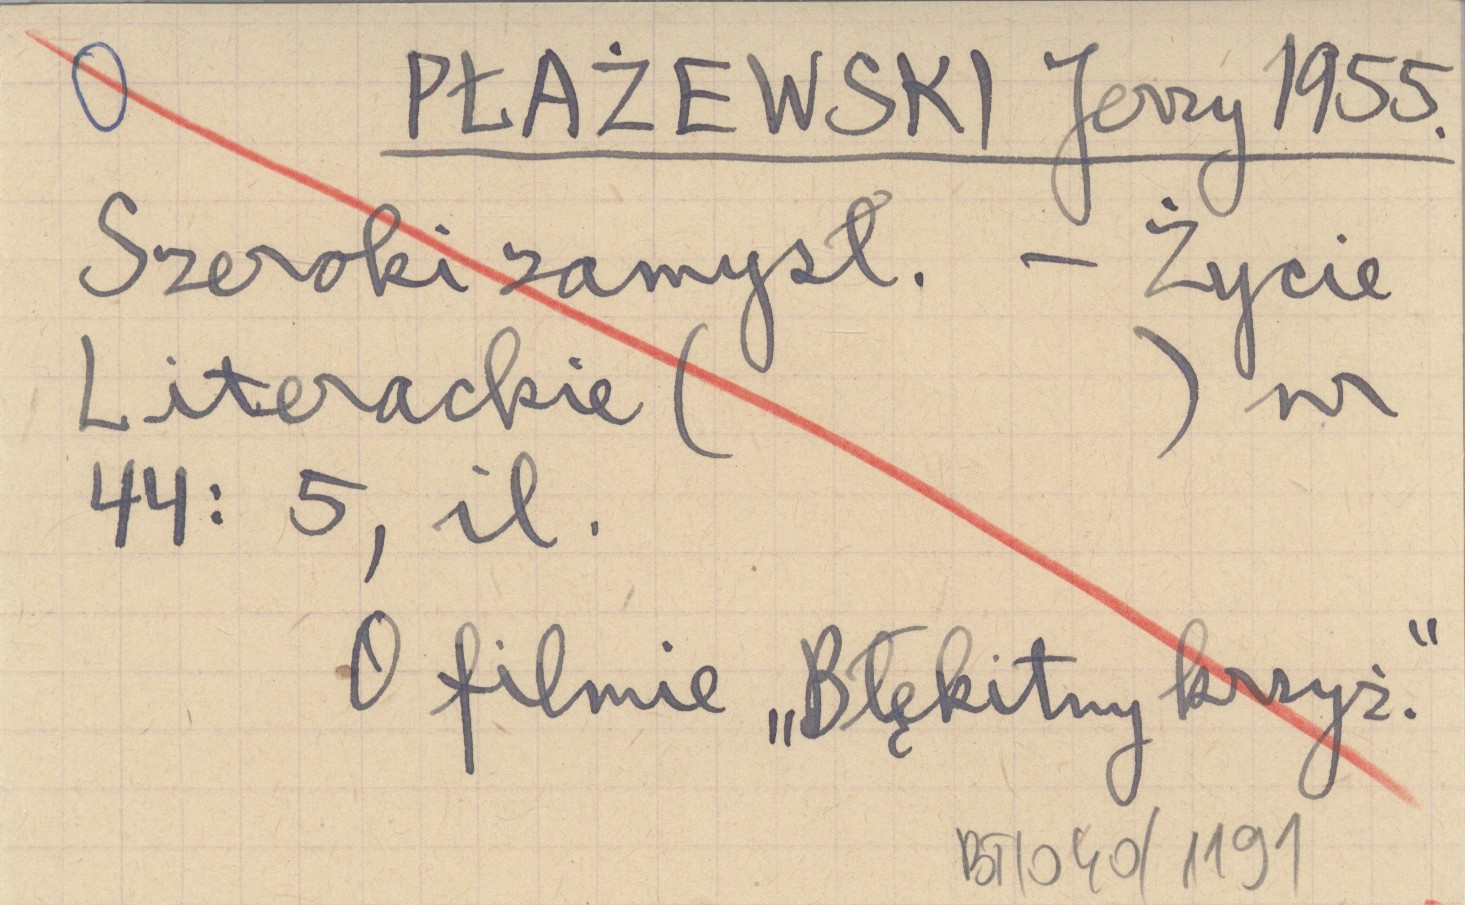 O PŁAŻEWSKI Jerzy 1955.
Szeroki zamysł. – Życie
Literackie ( ) nr
44: 5, il.
O filmie „Błękitny krzyż.“
BT/040/1191